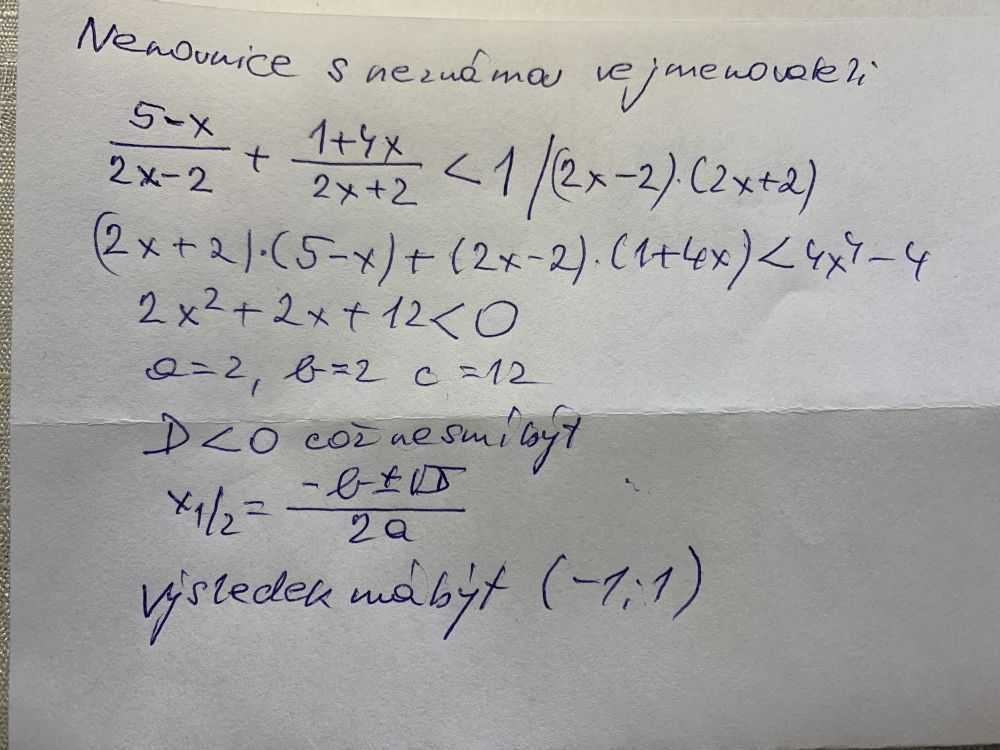 Nerovnice s neznámou ve jmenovateli
5-x/2x-2 + 1+4x/2x+2 < 1 /(2x-2)·(2x+2)
(2x+2)·(5-x)+(2x-2)·(1+4x)<4x⁴-4
2x²+2x+12<0
a=2, b=2 c=12
D<0 což nesmí být
x1/2= -b±√D/2a
výsledek má být (-1;1)